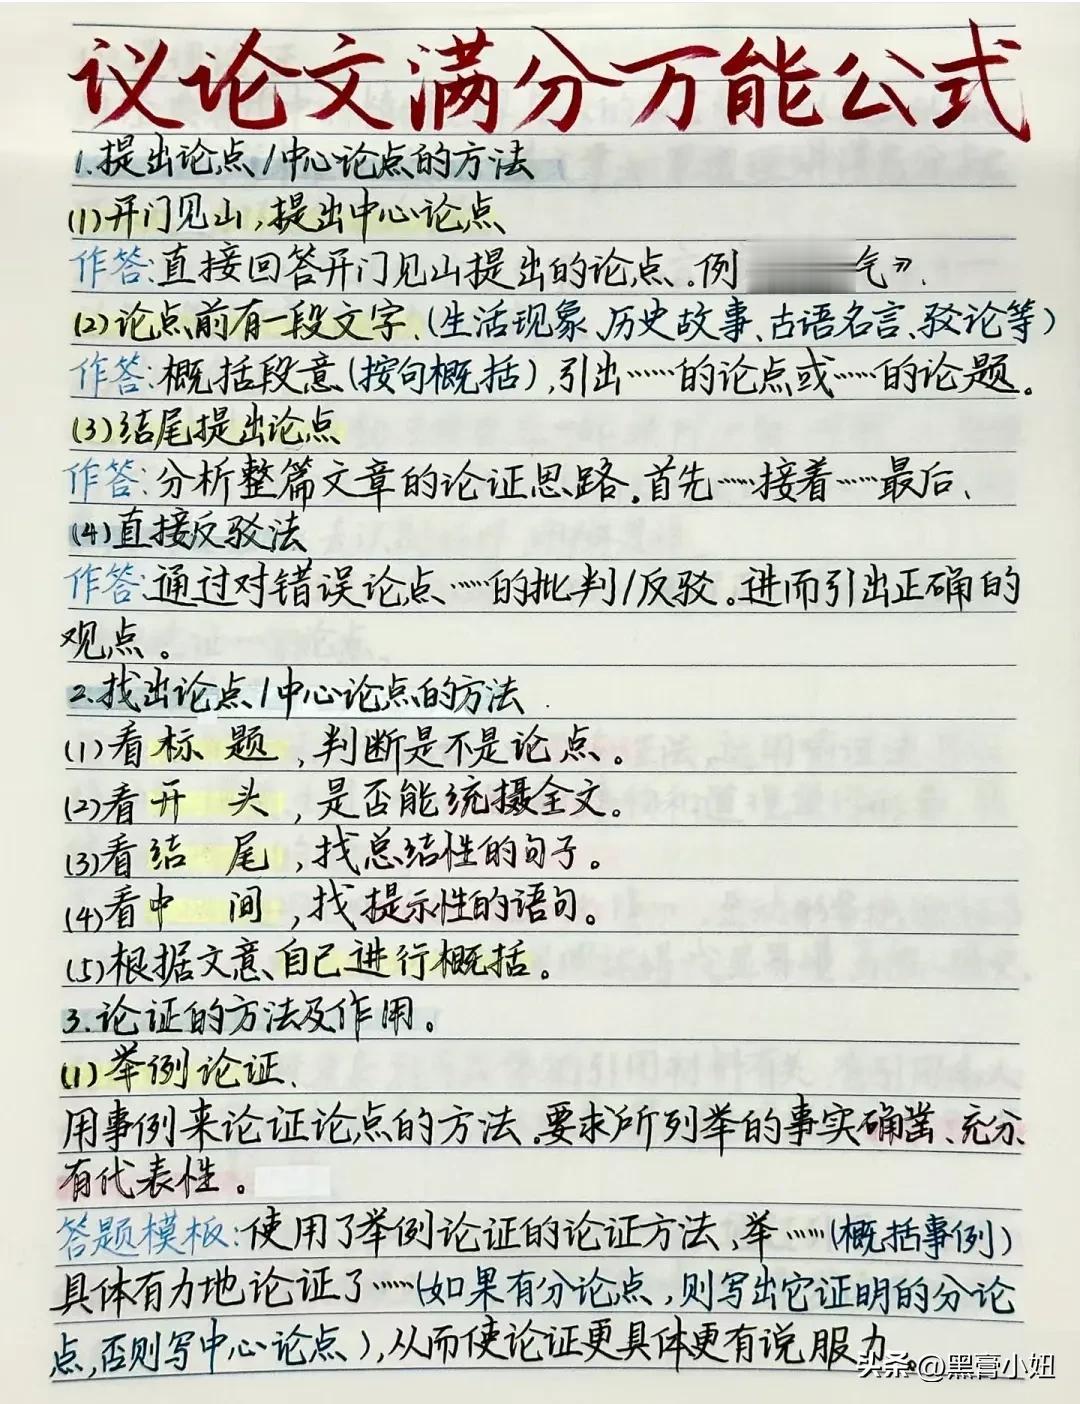 议论文满分万能公式
1.提出论点/中心论点的方法
(1)开门见山,提出中心论点
作答:直接回答开门见山提出的论点。例 气》.
(2)论点前有一段文字.(生活现象、历史故事、古语名言、驳论等)
作答:概括段意(按句概括),引出……的论点或……的论题。
(3)结尾提出论点
作答:分析整篇文章的论证思路.首先……接着……最后、
(4)直接反驳法
作答:通过对错误论点……的批判/反驳。进而引出正确的
观点。
2.找出论点/中心论点的方法.
(1)看标题,判断是不是论点。
(2)看开头,是否能统摄全文。
(3)看结尾,找总结性的句子。
(4)看中间,找提示性的语句。
(5)根据文意、自己进行概括。
3.论证的方法及作用。
(1)举例论证.
用事例来论证论点的方法.要求所列举的事实确凿、充分、
有代表性。
答题模板:使用了举例论证的论证方法,举……(概括事例)
具体有力地论证了……(如果有分论点,则写出它证明的分论
点,否则写中心论点),从而使论证更具体更有说服力。
头条 @黑膏小妞